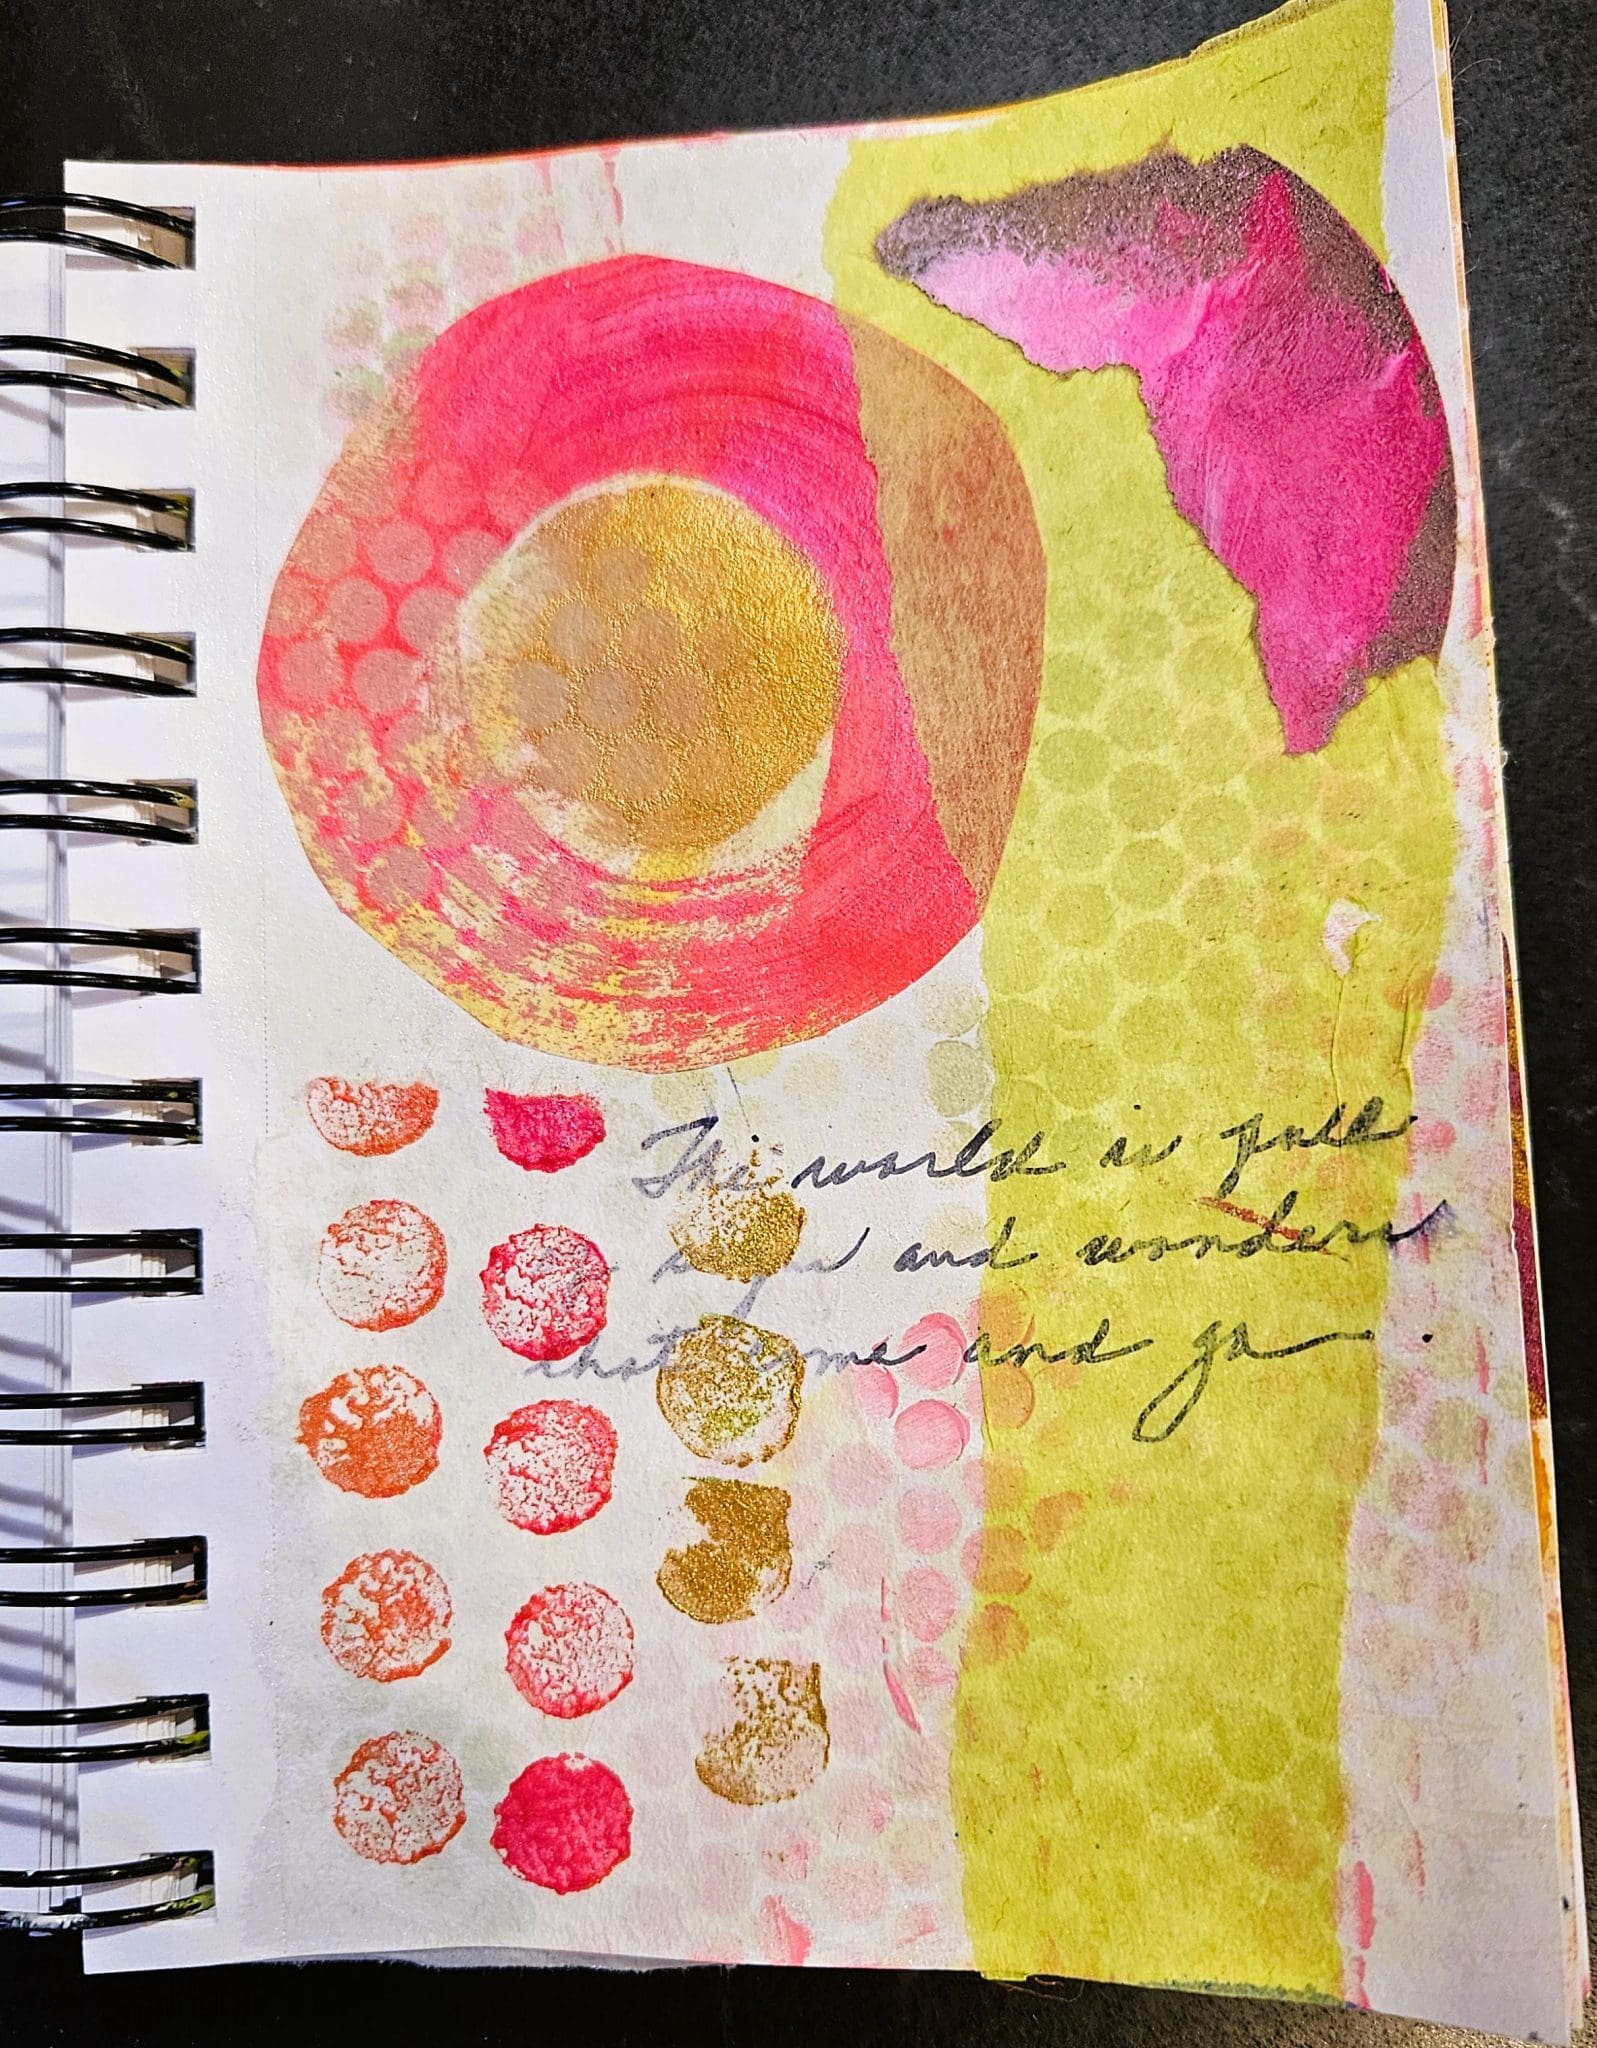 The world is full
of signs and wonders
that come and go.